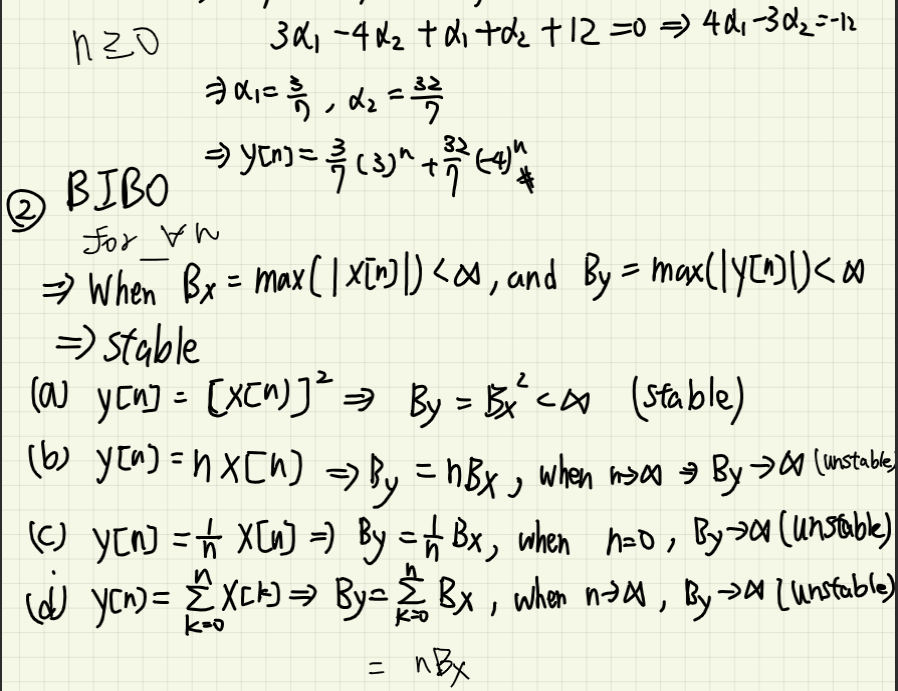 n≥0 3α₁ -4α₂ + α₁+α₂ +12 =0 ⇒ 4α₁-3α₂=-12
⇒ α₁=3/7 , α₂ = 32/7
⇒ y[n] = 3/7 (3)ⁿ + 32/7 (-4)ⁿ #
② BIBO
for ∀n
⇒ When Bx = max(|x[n]|) < ∞, and By = max(|y[n]|) < ∞
⇒ stable
(a) y[n] = [x[n]]² ⇒ By = Bx² < ∞ (stable)
(b) y[n] = n x[n] ⇒ By = nBx , when n→∞ ⇒ By → ∞ (unstable)
(c) y[n] = 1/n x[n] ⇒ By = 1/n Bx, when n=0 , By→∞ (unstable)
(d) y[n] = ∑ₖ₌₀ⁿ x[k] ⇒ By = ∑ₖ₌₀ⁿ Bx , when n→∞ , By→∞ (unstable)
= nBx